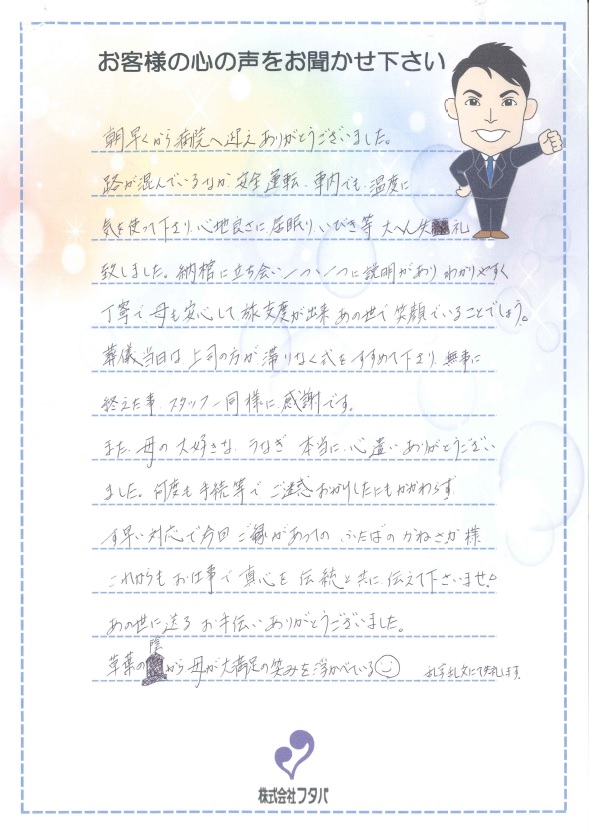 お客様の心の声をお聞かせ下さい
朝早くから病院へ迎えありがとうございました。
路が混んでいるなか、安全運転、車内でも、温度に
気を使って下さり、心地良さに、居眠り、いびき等 大へん失礼
致しました。納棺に立ち会い一つ一つに説明があり わかりやすく
丁寧で母も安心して旅支度が出来 あの世で笑顔でいることでしょう。
葬儀当日は、上司の方が滞りなく式をすすめて下さり、無事に
終えた事、スタッフ一同様に、感謝です。
また、母の大好きな、うなぎ 本当に、心遣い、ありがとうござい
ました。何度も手続等で ご迷惑おかけしたにもかかわらず、
す早い対応で今回 ご縁があっての、ふたばの かねさか様、
これからも お仕事で 真心を 伝統と共に、伝えて下さいませ。
あの世に送る お手伝い ありがとうございました。
草葉の陰から 母が大満足の笑みを浮かべている
乱字乱文にて失礼します。
株式会社フタバ